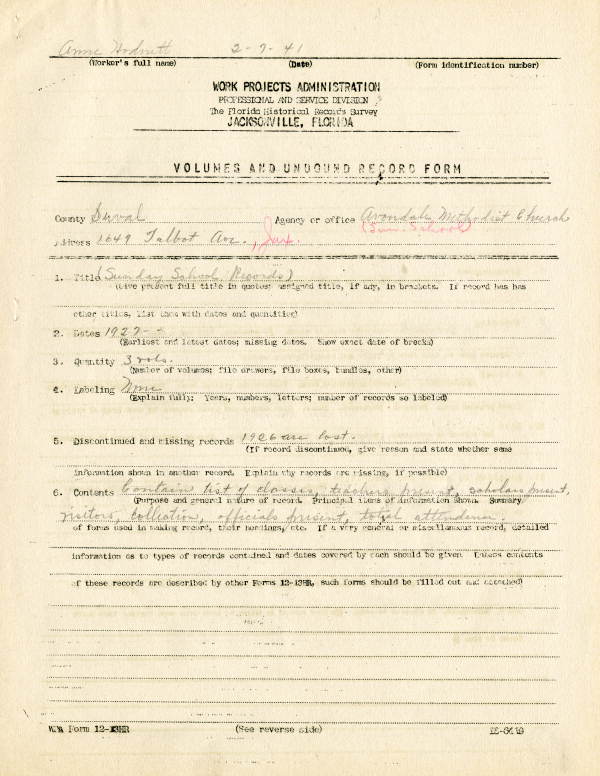 Anne Hodnett 2-7-41
(Worker's full name) (Date) (Form identification number)
WORK PROJECTS ADMINISTRATION
PROFESSIONAL AND SERVICE DIVISION
The Florida Historical Records Survey
JACKSONVILLE, FLORIDA
VOLUMES AND UNBOUND RECORD FORM
County Duval Agency or office Avondale Methodist Church
(Sun. School)
Address 1649 Talbot Ave., Jax.
1. Title (Sunday School Records)
(Give present full title in quotes; assigned title, if any, in brackets. If record has has
other titles, list them with dates and quantities)
2. Dates 1927--
(Earliest and latest dates; missing dates. Show exact date of breaks)
3. Quantity 3 vols.
(Number of volumes; file drawers, file boxes, bundles, other)
4. Labeling None
(Explain fully: Years, numbers, letters; number of records so labeled)
5. Discontinued and missing records 1926 are lost.
(If record discontinued, give reason and state whether same
information shown in another record. Explain why records are missing, if possible)
6. Contents Contain list of classes, teachers present, scholars present,
(Purpose and general nature of record. Principal items of information shown. Summary
visitors, collection, officials present, total attendance.
of forms used in making record, their headings, etc. If a very general or miscellaneous record, detailed
information as to types of records contained and dates covered by each should be given. Unless contents
of these records are described by other Forms 12-13HR, such forms should be filled out and attached)
WPA Form 12-13HR (See reverse side)